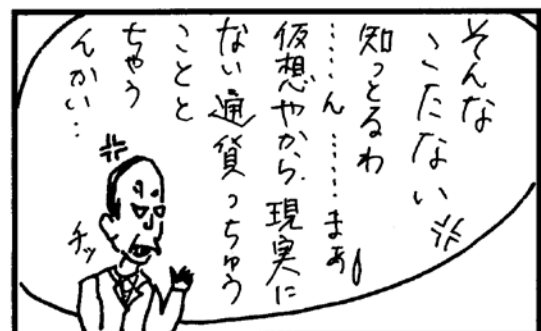 そんな
こたない
知っとるわ
……ん……まぁ
仮想やから現実に
ない通貨っちゅう
ことと
ちゃう
んかい…
チッ